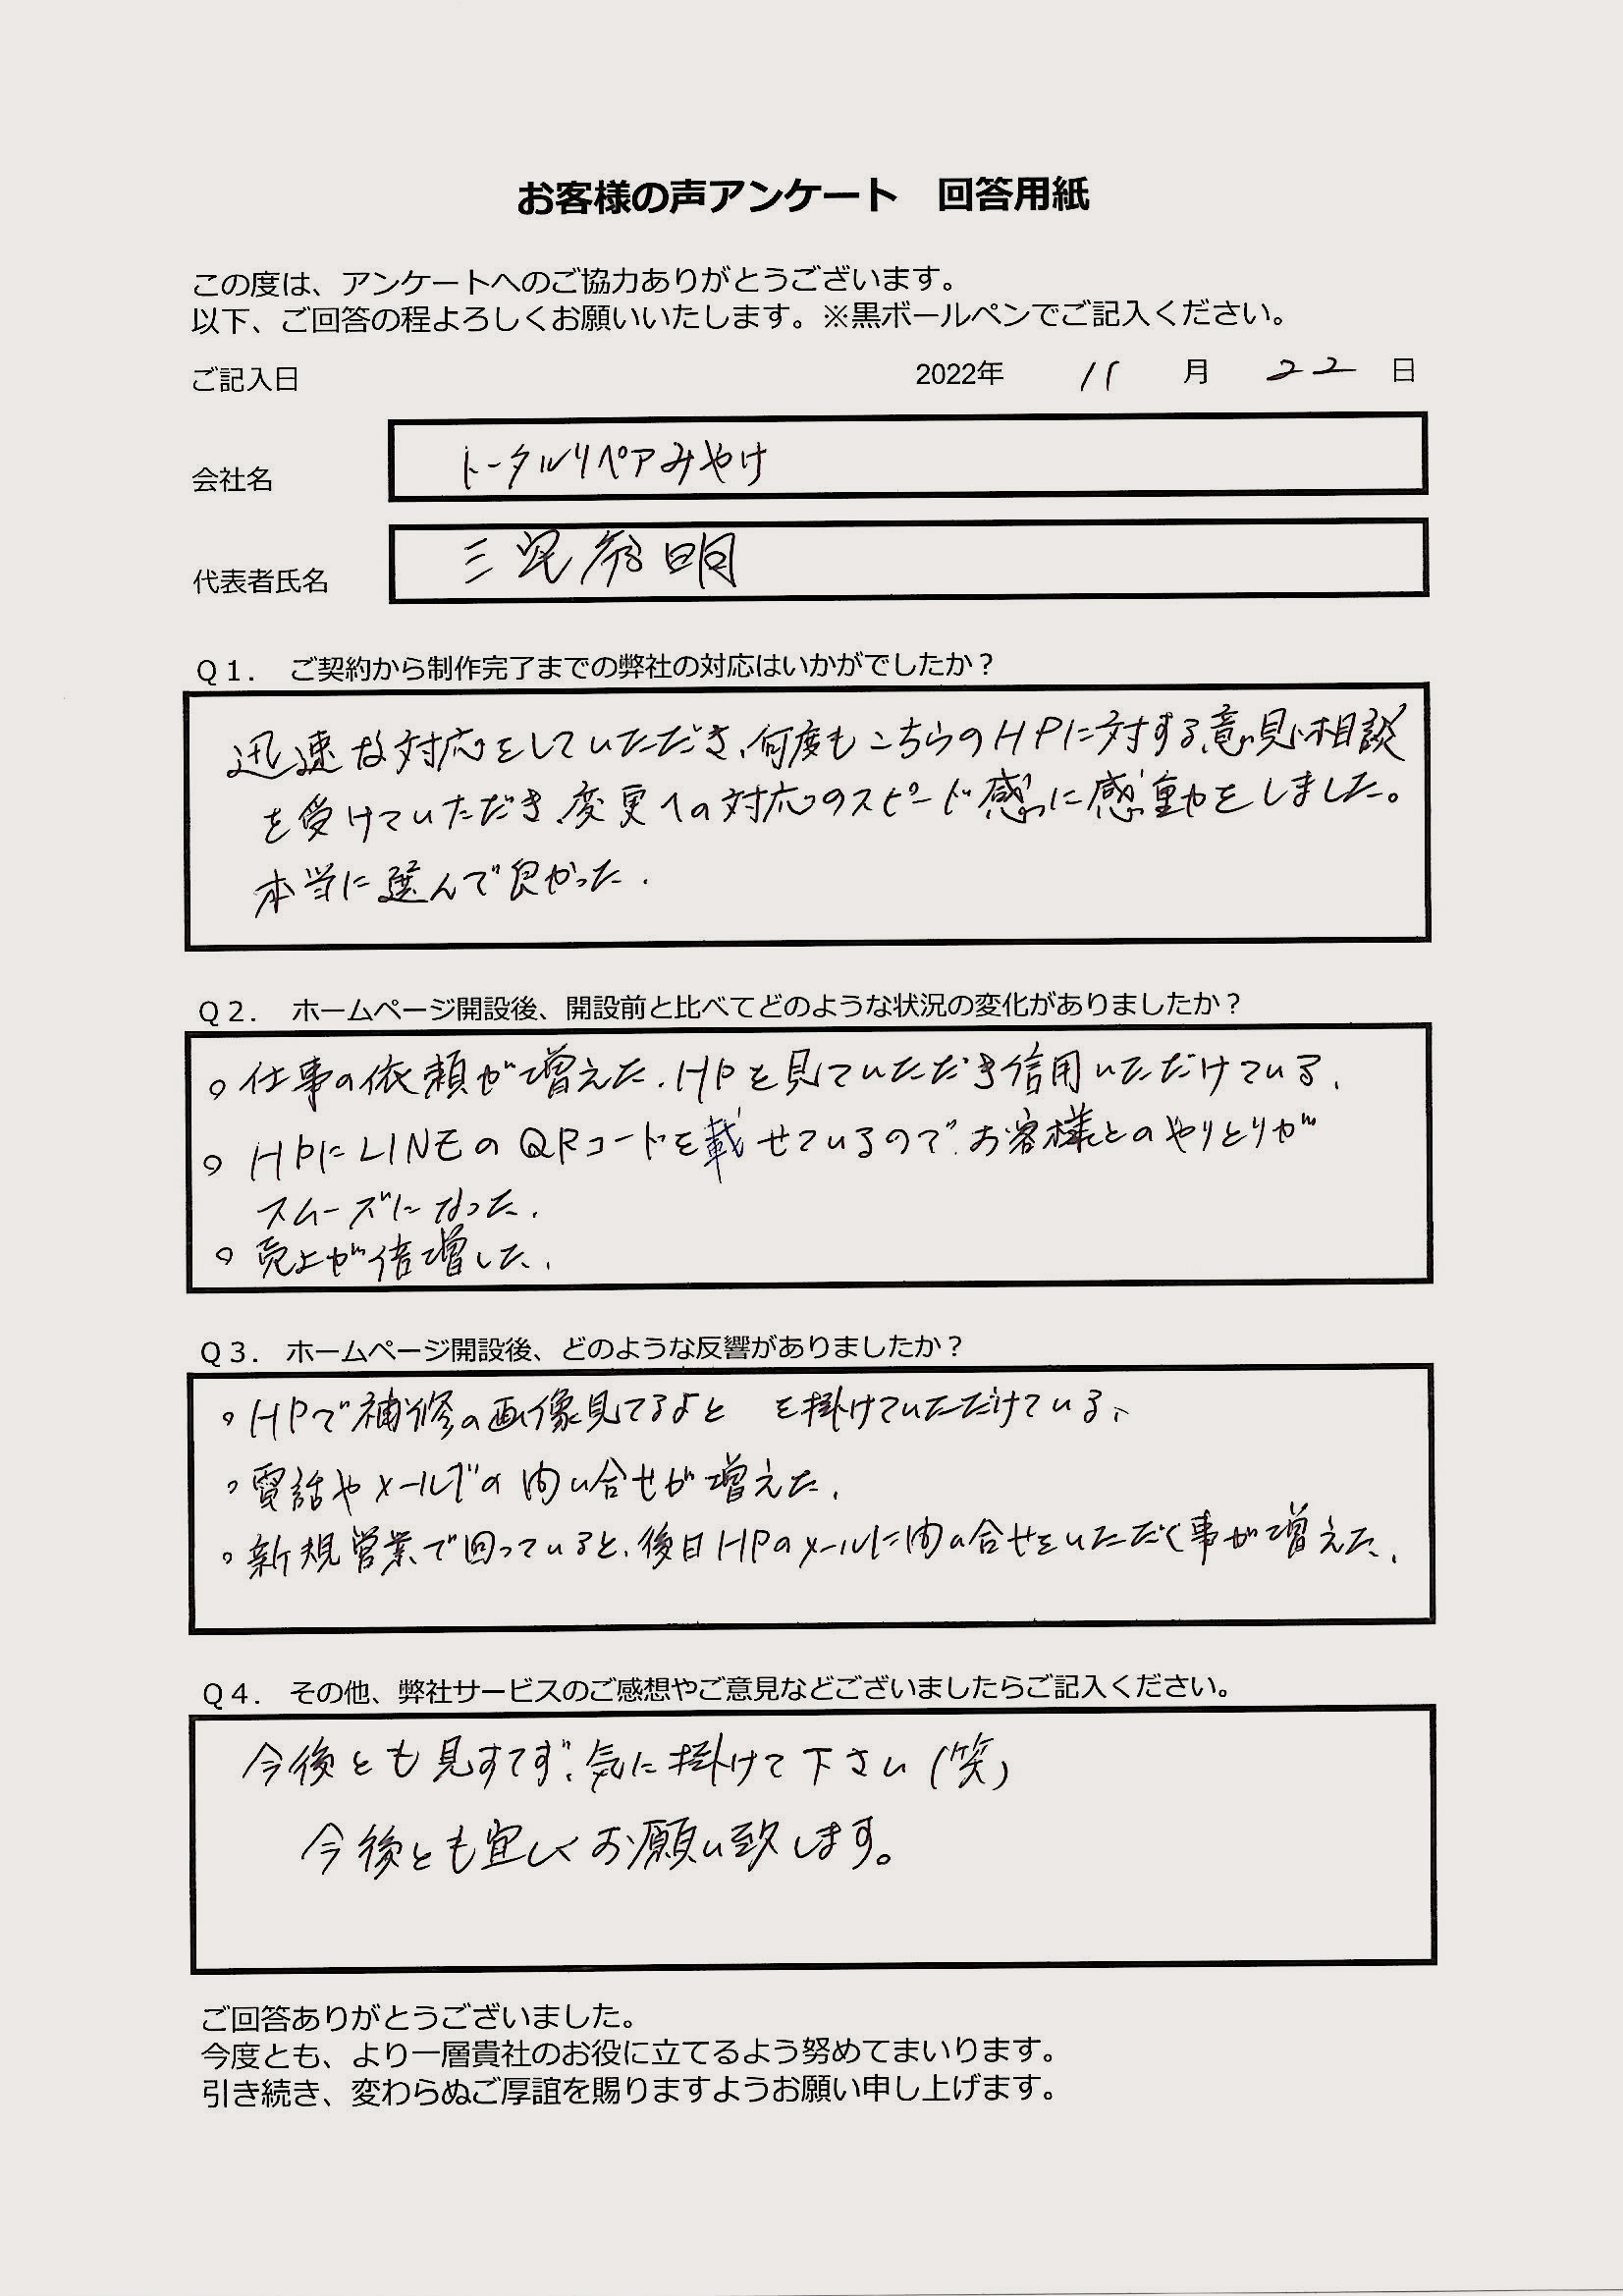 お客様の声アンケート　回答用紙
この度は、アンケートへのご協力ありがとうございます。
以下、ご回答の程よろしくお願いいたします。※黒ボールペンでご記入ください。
ご記入日 2022年 11 月 22 日
会社名 トータルリペアみやけ
代表者氏名 三宅 明
Q1. ご契約から制作完了までの弊社の対応はいかがでしたか？
迅速な対応をしていただき、何度もこちらのHPに対する意見、相談
を受けていただき、変更への対応のスピード感に感動をしました。
本当に選んで良かった.
Q2. ホームページ開設後、開設前と比べてどのような状況の変化がありましたか？
○ 仕事の依頼が増えた. HPを見ていただき信用いただけている.
○ HPにLINEのQRコードを載せているので、お客様とのやりとりが
スムーズになった.
○ 売上が倍増した.
Q3. ホームページ開設後、どのような反響がありましたか？
○ HPで補修の画像見てるよと　を掛けていただけている、
○ 電話やメールでの問い合せが増えた.
○ 新規営業で回っていると、後日HPのメールに問い合せをいただく事が増えた.
Q4. その他、弊社サービスのご感想やご意見などございましたらご記入ください。
今後とも見すてず、気に掛けて下さい（笑）
今後とも宜しくお願い致します。
ご回答ありがとうございました。
今度とも、より一層貴社のお役に立てるよう努めてまいります。
引き続き、変わらぬご厚誼を賜りますようお願い申し上げます。